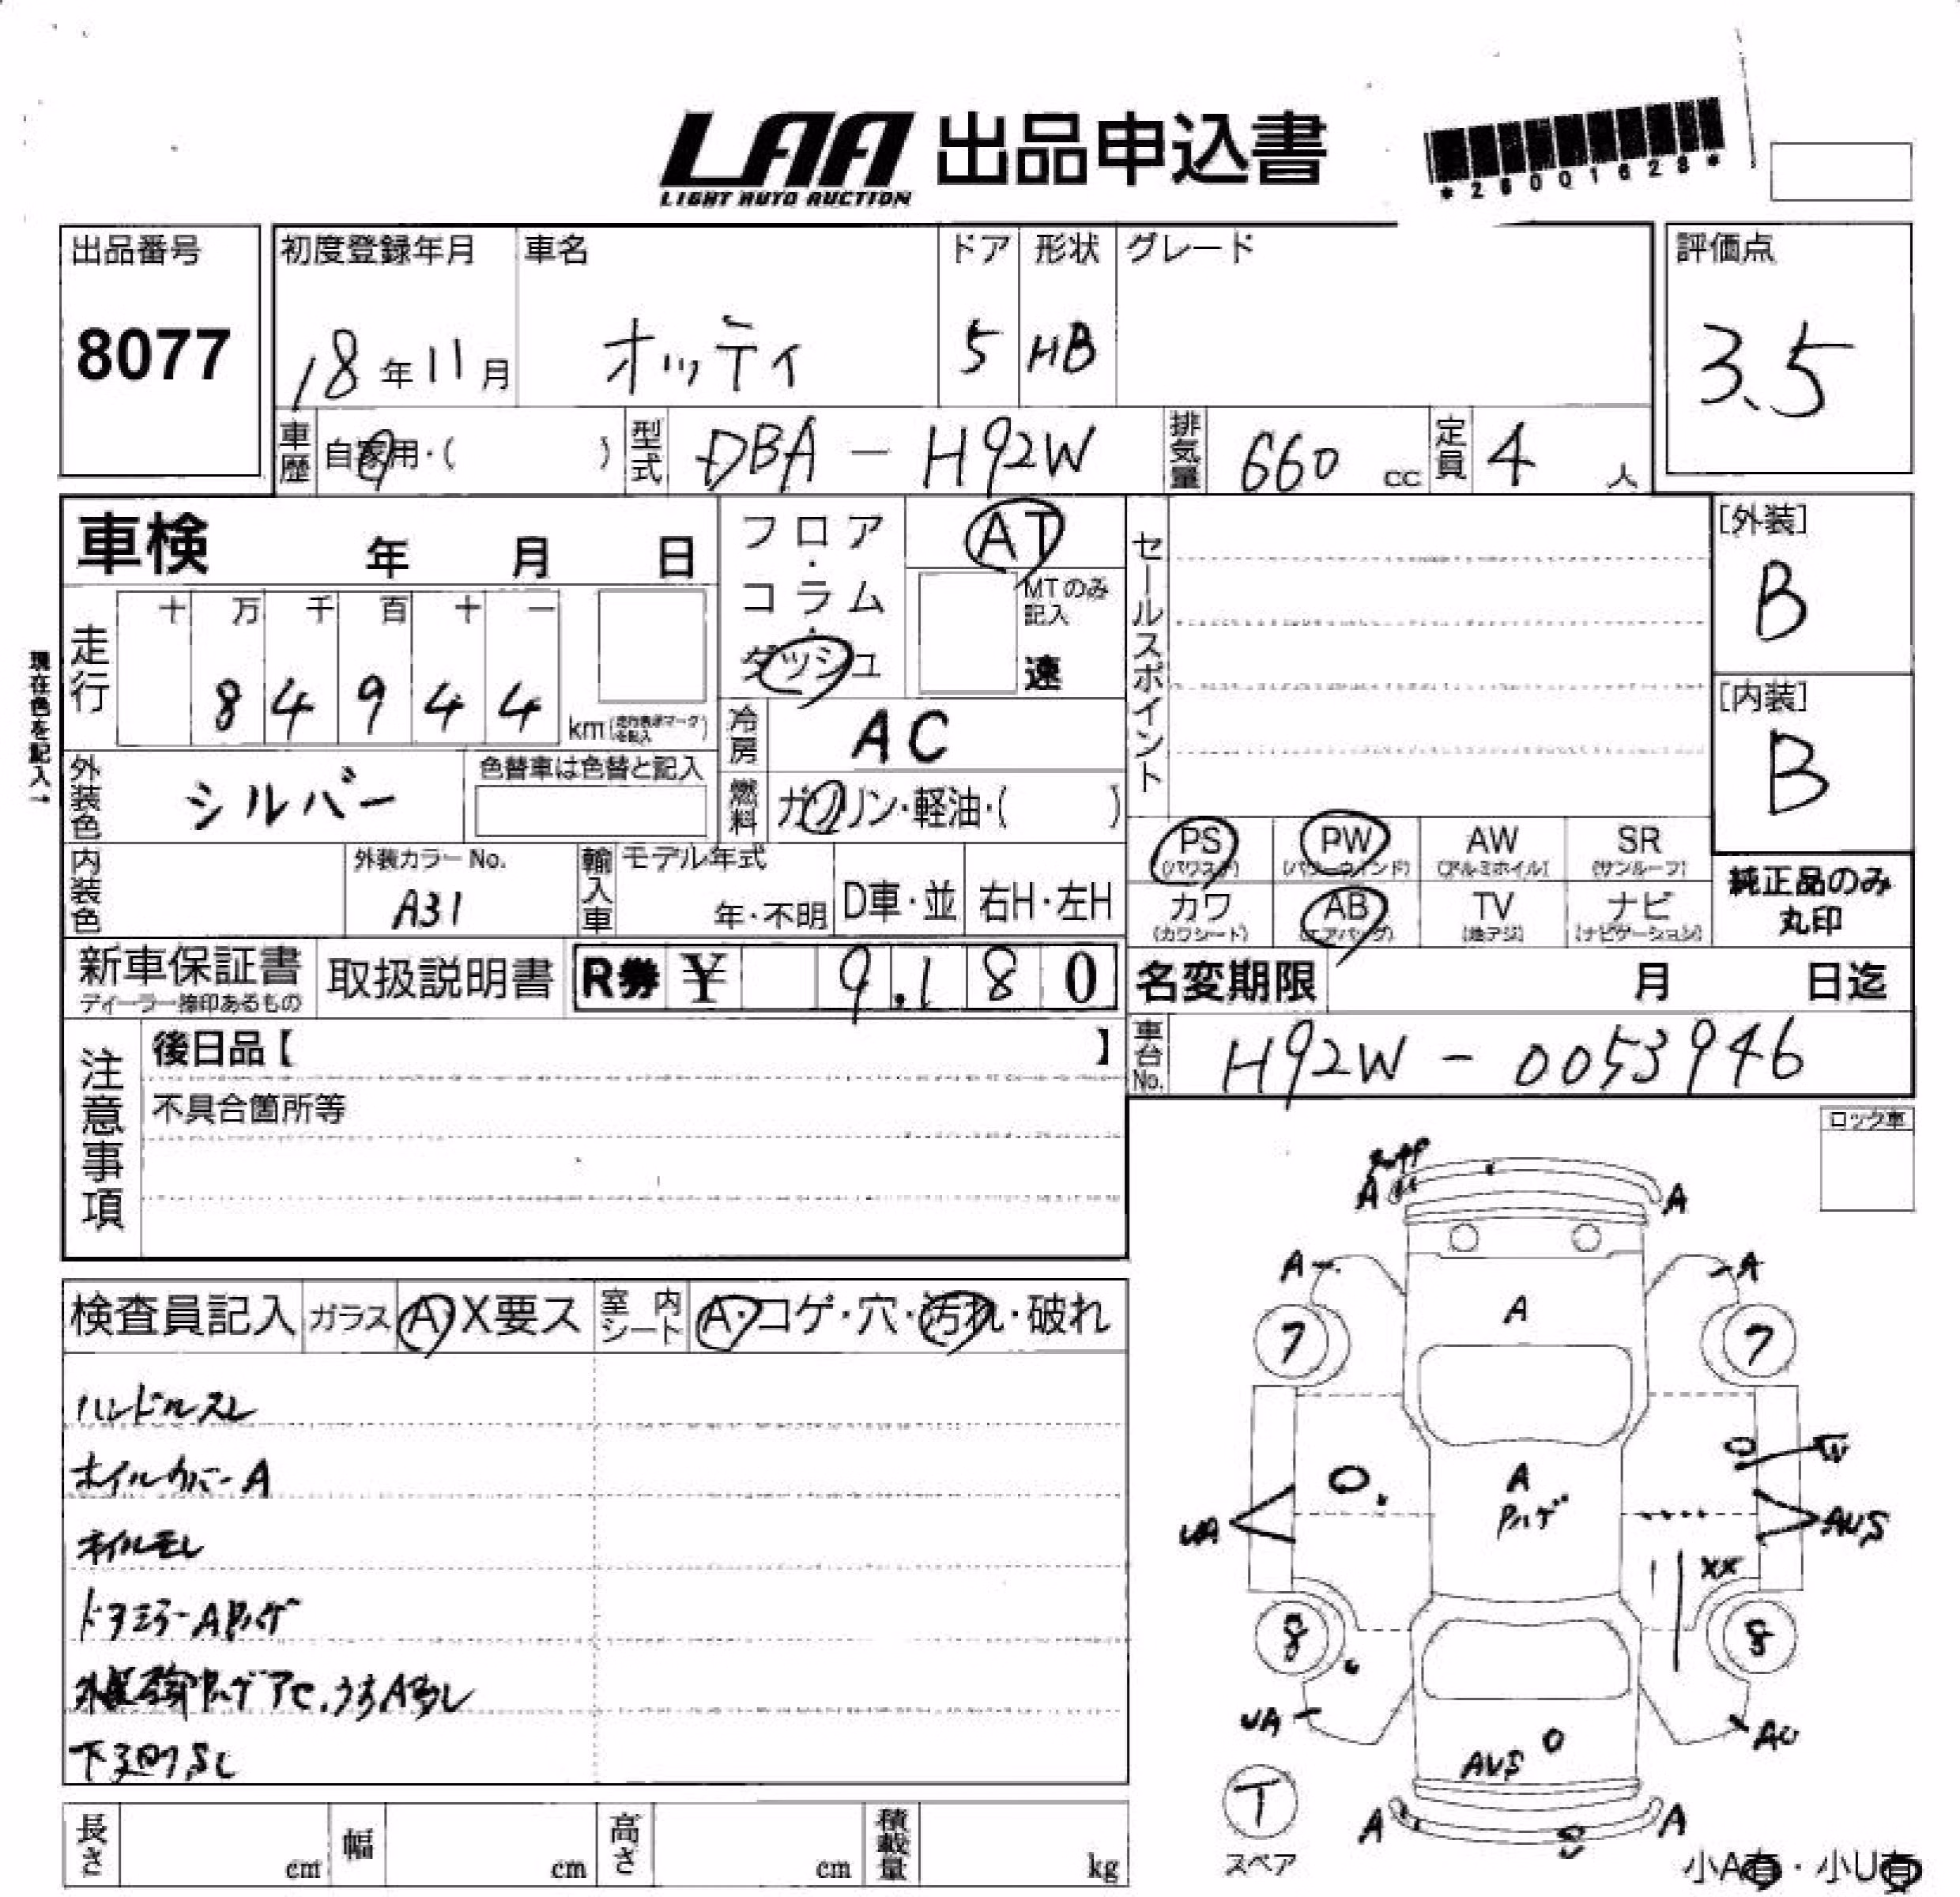 LAA 出品申込書
LIGHT AUTO AUCTION
*26001628*
出品番号 初度登録年月 車名 ドア 形状 グレード 評価点
8077 18年11月 オッティ 5 HB 3.5
車歴 自家用・( ) 型式 DBA-H92W 排気量 660 cc 定員 4 人
車検 年 月 日
フロア・コラム・ダッシュ
AT
MTのみ記入
速
セールスポイント
[外装]
B
[内装]
B
現在色を記入→
走行 十 万 千 百 十 一
8 4 9 4 4 km
冷房 AC
外装色 シルバー 色替車は色替と記入
燃料 ガソリン・軽油・( )
PS PW AW SR
(パワステ) (パワーウインド) (アルミホイル) (サンルーフ)
カワ AB TV ナビ
(カワシート) (エアバッグ) (地デジ) (ナビゲーション)
純正品のみ
丸印
内装色 外装カラーNo. A31 輸入車 モデル年式 年・不明 D車・並 右H・左H
新車保証書 取扱説明書 R券 ¥ 9,180
ディーラー捺印あるもの
名変期限 月 日迄
車台No. H92W-0053946
注意事項
後日品【 】
不具合箇所等
ロック車
検査員記入 ガラス A X要ス 室内シート A・コゲ・穴・汚れ・破れ
ハンドルスレ
ホイルカバーA
ドアミラーAハゲ
下廻りSし
A A
A A
A
7 7
A
ハゲ
UA AUS
XX
8 8
UA AU
AUS
T
スペア
A A
S
小A有・小U有
長さ cm 幅 cm 高さ cm 積載量 kg